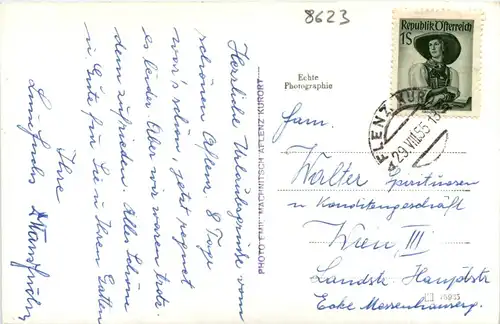 8623
Republik Österreich
1S
AFLENZ KUR
29.VIII.55-13
Echte
Photographie
PHOTO PUHL MACHNITSCH AFLENZ KURORT
Herzliche Urlaubsgrüße vom
schönen Aflenz. 8 Tage
war's schön, jetzt regnet
es leider. Aber wir waren trotz-
dem zufrieden. Alles Schöne
u Gute für Sie u Ihren Gatten
Ihre
Fam.
Walter Spirituosen
u Konditengeschäft
Wien III
Landstr. Hauptstr
Ecke Messenhauserg.